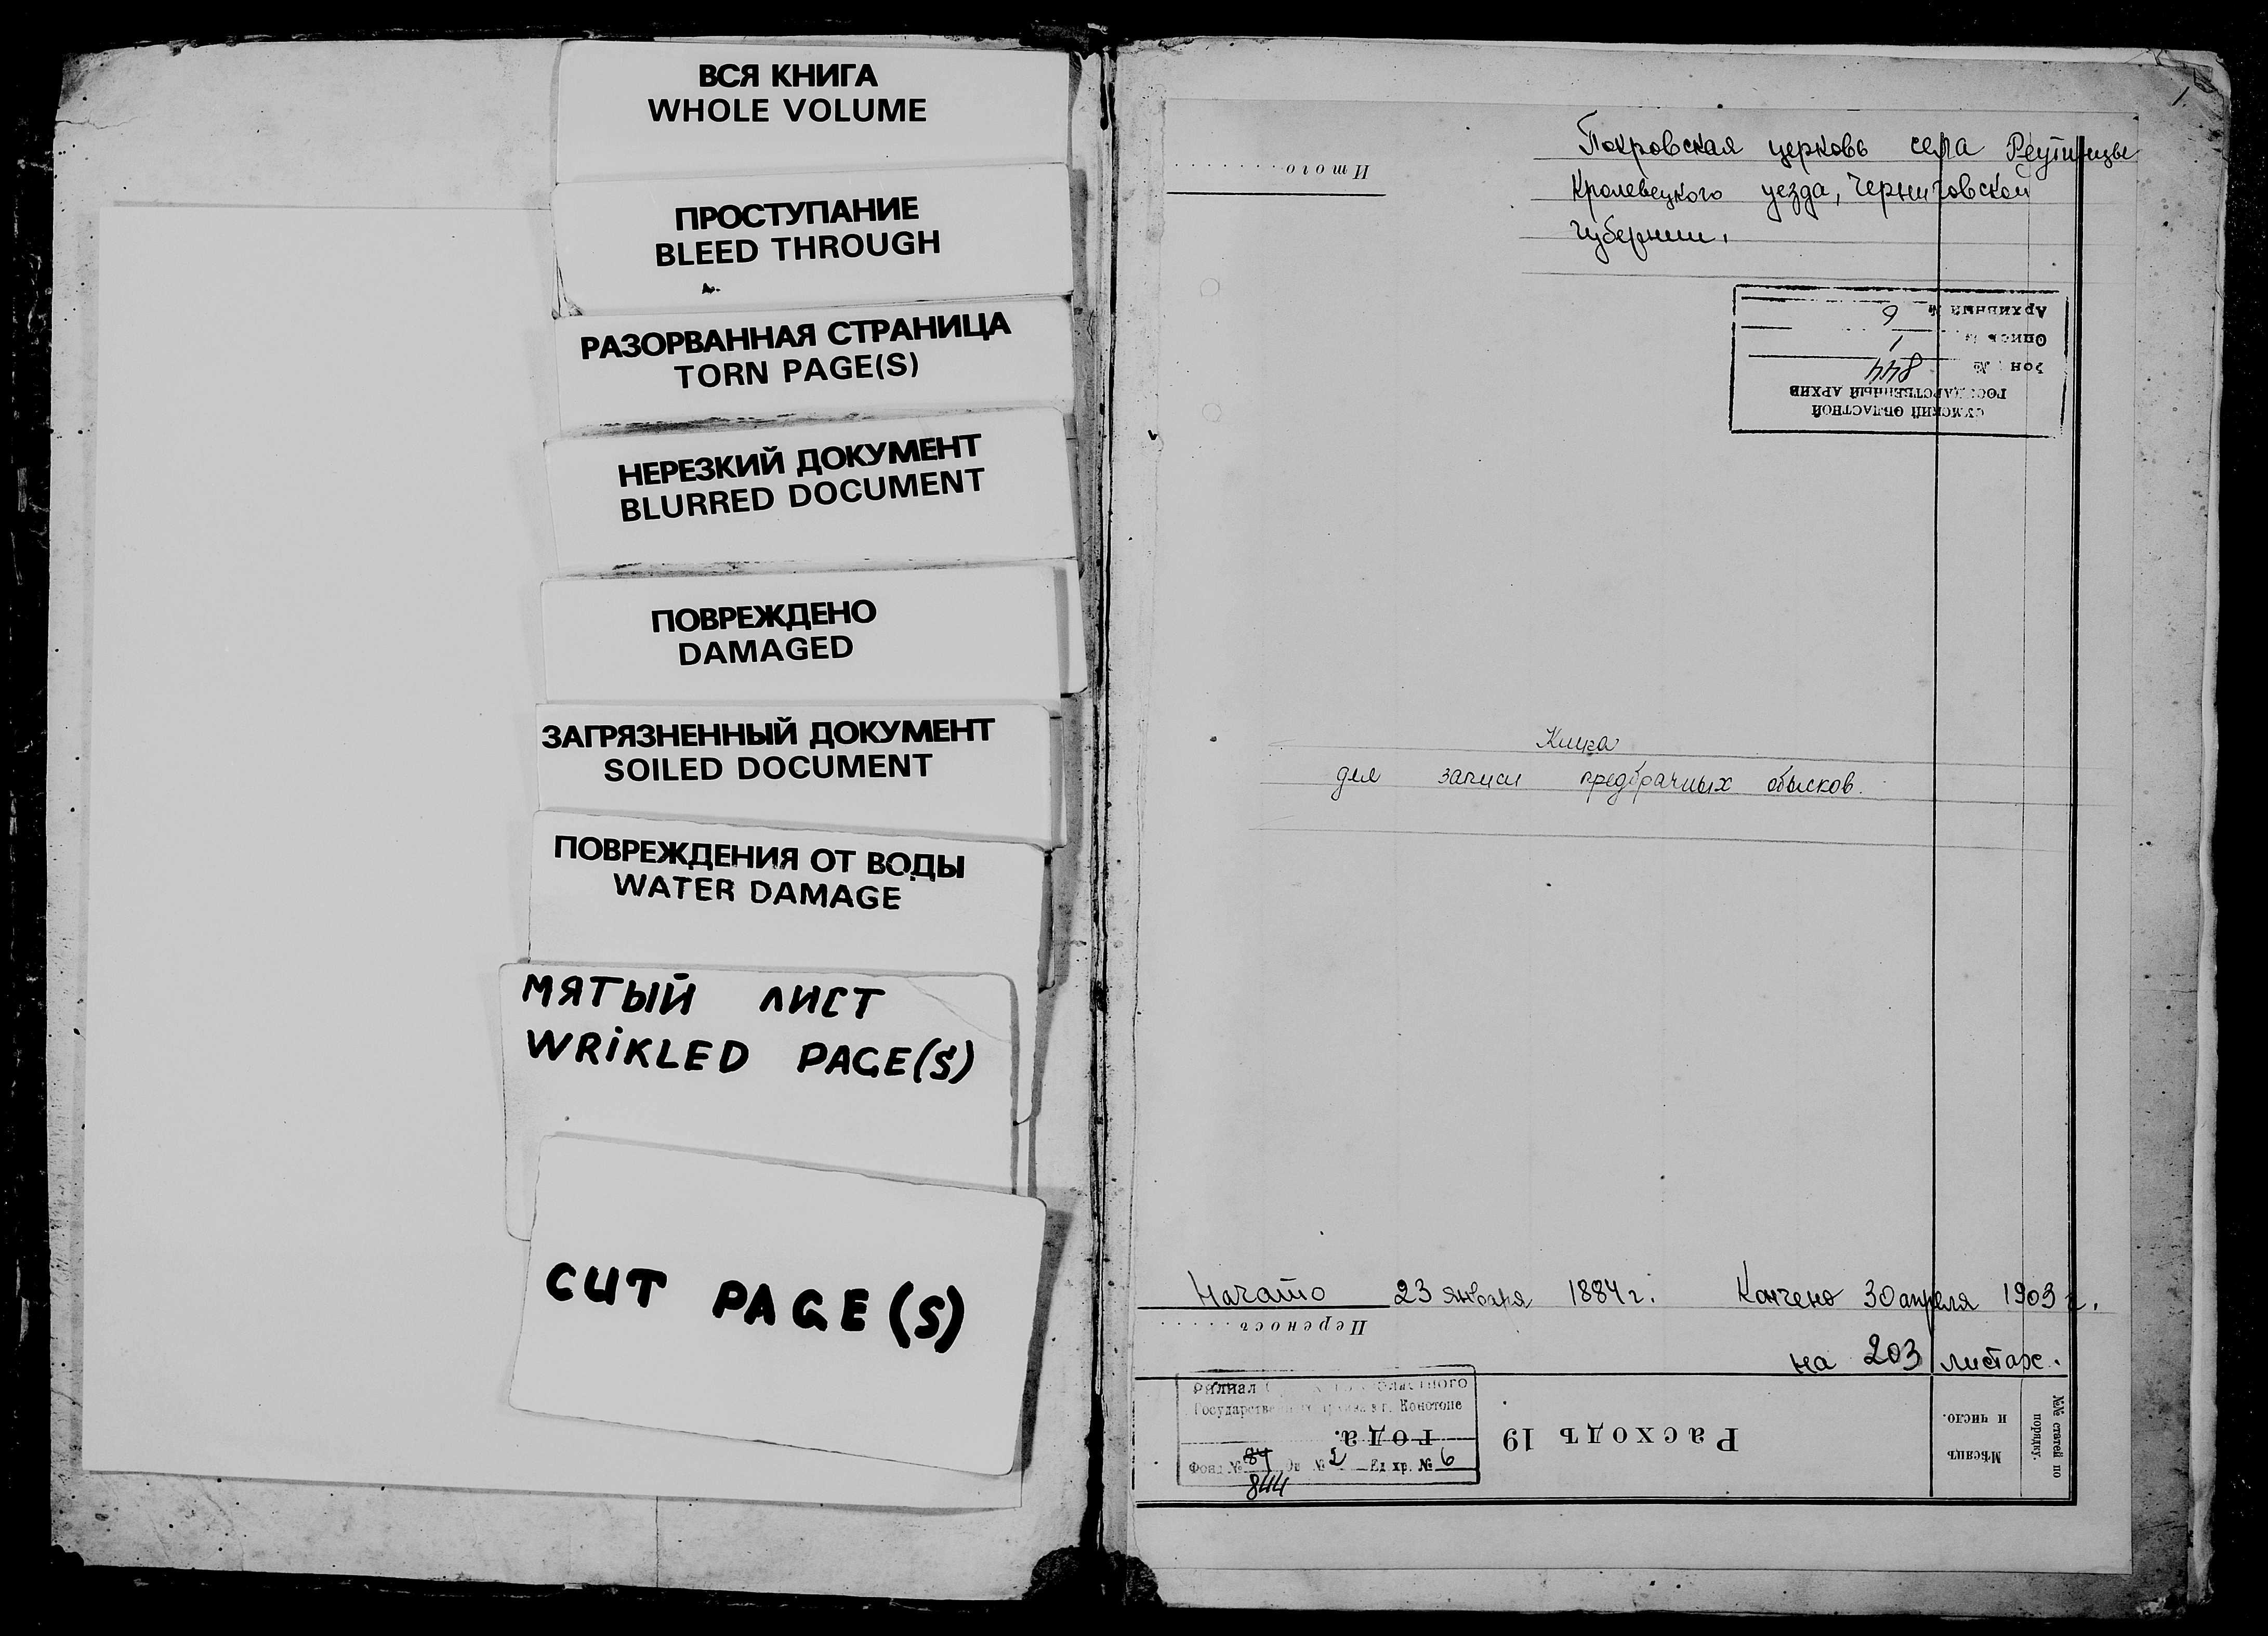 ВСЯ КНИГА
WHOLE VOLUME
ПРОСТУПАНИЕ
BLEED THROUGH
РАЗОРВАННАЯ СТРАНИЦА
TORN PAGE(S)
НЕРЕЗКИЙ ДОКУМЕНТ
BLURRED DOCUMENT
ПОВРЕЖДЕНО
DAMAGED
ЗАГРЯЗНЕННЫЙ ДОКУМЕНТ
SOILED DOCUMENT
ПОВРЕЖДЕНИЯ ОТ ВОДЫ
WATER DAMAGE
МЯТЫЙ ЛИСТ
WRIKLED PAGE(S)
CUT PAGE(S)
1.
Покровская церковь села Реутинцы
Кролевецкого уезда, Черниговской
губернии.
Итого
СУМСКИЙ ОБЛАСТНОЙ
ГОСУДАРСТВЕННЫЙ АРХИВ
№ 844
Опись № 1
Архивный № 6
Книга
для записи предбрачных обысков.
Начато 23 января 1884 г. Кончено 30 апреля 1903 г.
Переносъ
на 203 листах.
Филиал областного
Государственного архива в г. Конотопе
Фонд № 84 Оп № 2 Ед хр. № 6
844
Расходъ 19 года.
Мѣсяцъ и число.
№№ статей по порядку.